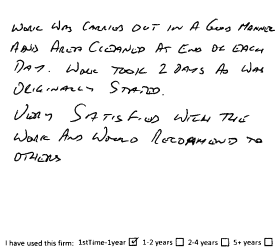 WORK WAS CARRIED OUT IN A GOOD MANNER
AND AREA CLEANED AT END OF EACH
DAY. WORK TOOK 2 DAYS AS WAS
ORIGINALLY STATED.
VERY SATISFIED WITH THE
WORK AND WOULD RECOMMEND TO
OTHERS
I have used this firm: 1stTime-1year ☑ 1-2 years ☐ 2-4 years ☐ 5+ years ☐